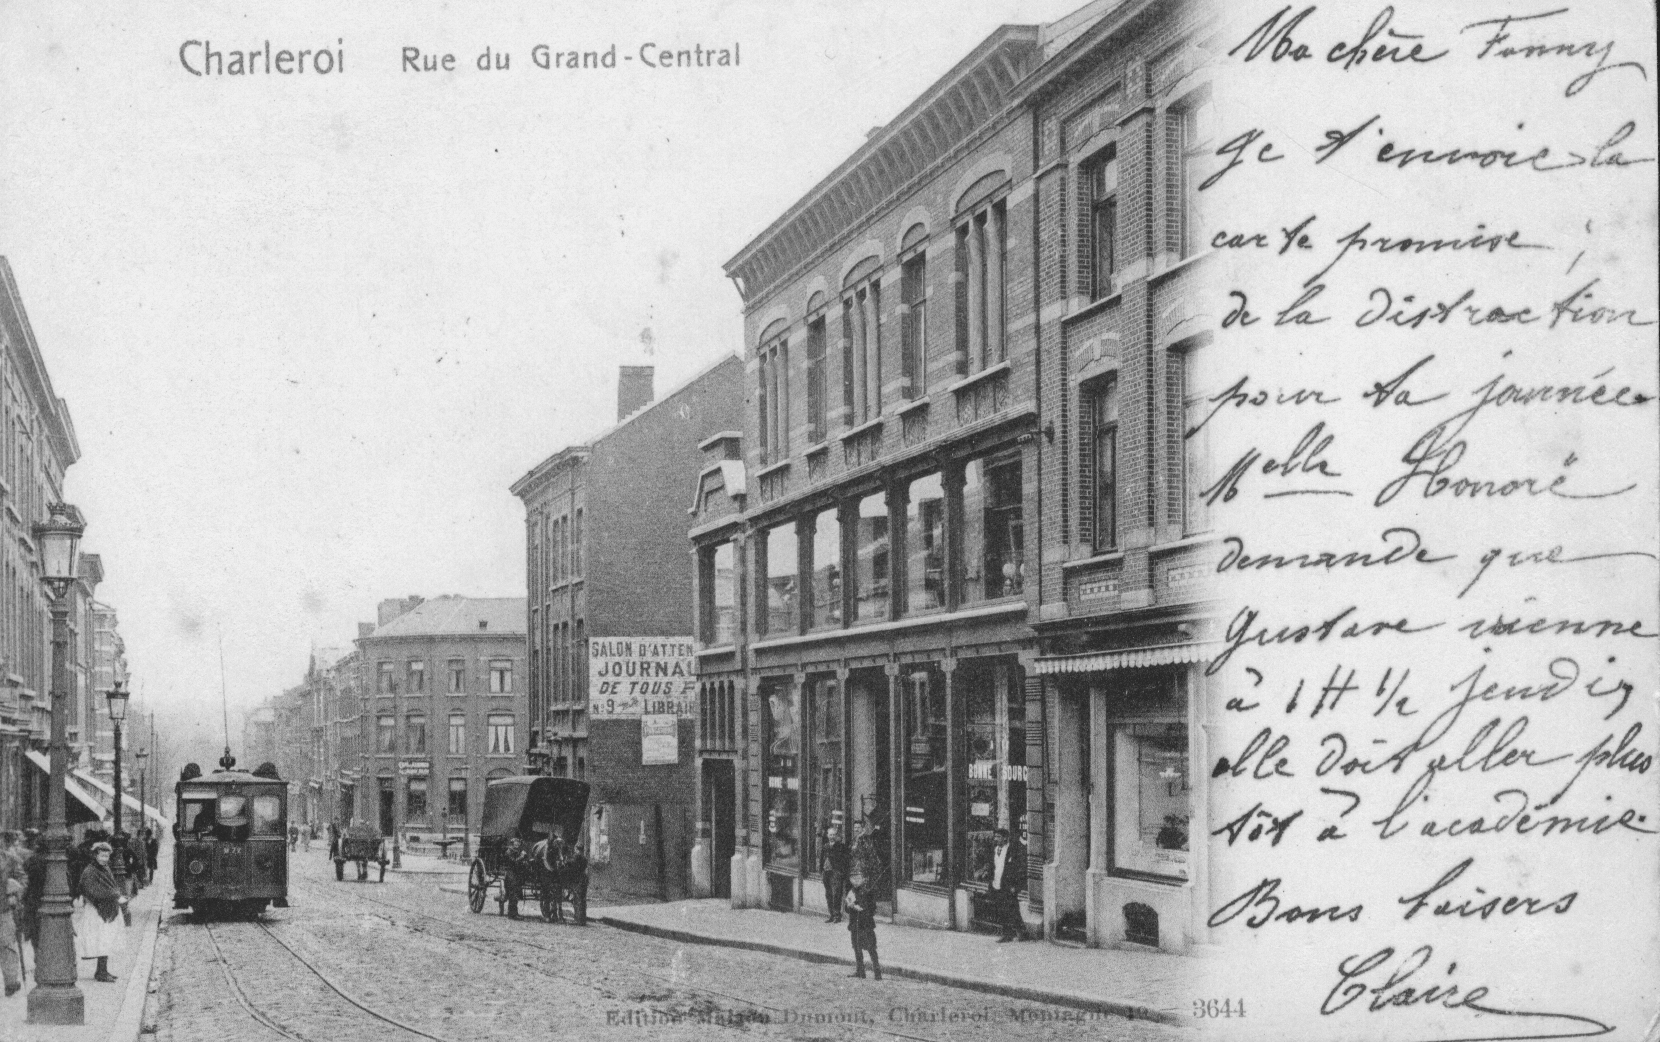 Charleroi Rue du Grand-Central
Ma chère Fanny
Je t'envoie la
carte promise ;
de la distraction
pour ta journée.
Melle Honoré
demande que
Gustave vienne
à 1 H 1/2 jeudi,
elle doit aller plus
tôt à l'académie.
Bons baisers
Claire
SALON D'ATTEN
JOURNAU
DE TOUS
N:9 LIBRAIR
BONNE SOURC
Edition Maison Dumont, Charleroi, Montagne 19 3644